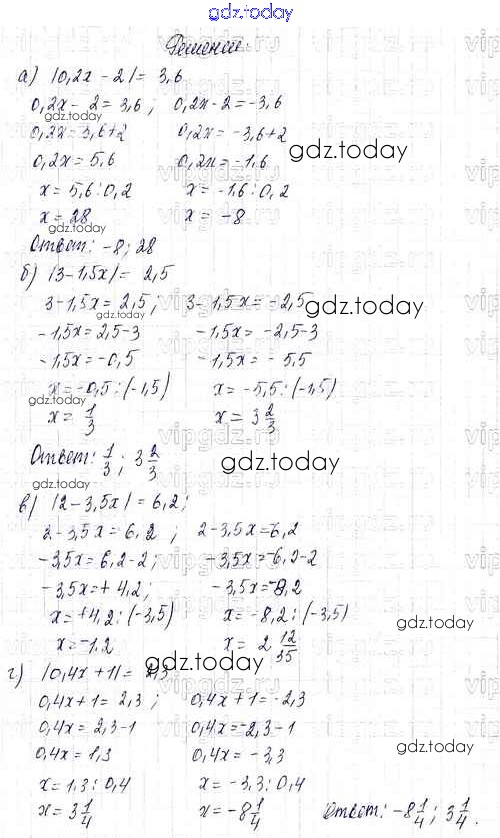 gdz.today
Решение.
а) |0,2x – 2| = 3,6
0,2x – 2 = 3,6 ; 0,2x – 2 = –3,6
0,2x = 3,6 + 2 0,2x = –3,6 + 2
0,2x = 5,6 0,2x = –1,6
x = 5,6 : 0,2 x = –1,6 : 0,2
x = 28 x = –8
Ответ: –8 ; 28
б) |3 – 1,5x| = 2,5
3 – 1,5x = 2,5 ; 3 – 1,5x = –2,5
–1,5x = 2,5 – 3 –1,5x = –2,5 – 3
–1,5x = –0,5 –1,5x = –5,5
x = –0,5 : (–1,5) x = –5,5 : (–1,5)
x = 1/3 x = 3 2/3
Ответ: 1/3 ; 3 2/3
в) |2 – 3,5x| = 6,2 ;
2 – 3,5x = 6,2 ; 2 – 3,5x = –6,2
–3,5x = 6,2 – 2 ; –3,5x = –6,2 – 2
–3,5x = +4,2 ; –3,5x = –8,2
x = +4,2 : (–3,5) x = –8,2 : (–3,5)
x = –1,2 x = 2 12/35
г) |0,4x + 1| = 2,3
0,4x + 1 = 2,3 ; 0,4x + 1 = –2,3
0,4x = 2,3 – 1 0,4x = –2,3 – 1
0,4x = 1,3 0,4x = –3,3
x = 1,3 : 0,4 x = –3,3 : 0,4
x = 3 1/4 x = –8 1/4 Ответ: –8 1/4 ; 3 1/4.